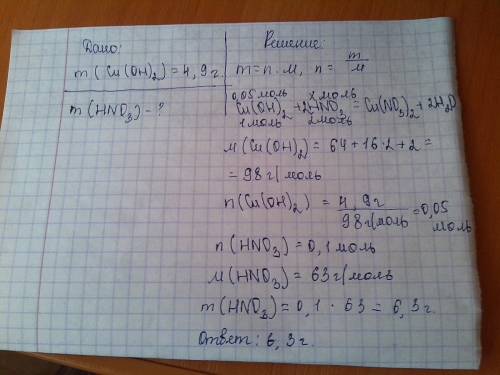 Дано:
m(Cu(OH)₂) = 4,9 г.
m(HNO₃) - ?
Решение:
m = n · M, n = m/M
0,05 моль x моль
Cu(OH)₂ + 2HNO₃ = Cu(NO₃)₂ + 2H₂O
1 моль 2 моль
M(Cu(OH)₂) = 64 + 16·2 + 2 =
= 98 г/моль
n(Cu(OH)₂) = 4,9 г / 98 г/моль = 0,05 моль
n(HNO₃) = 0,1 моль
M(HNO₃) = 63 г/моль
m(HNO₃) = 0,1 · 63 = 6,3 г.
Ответ: 6,3 г.